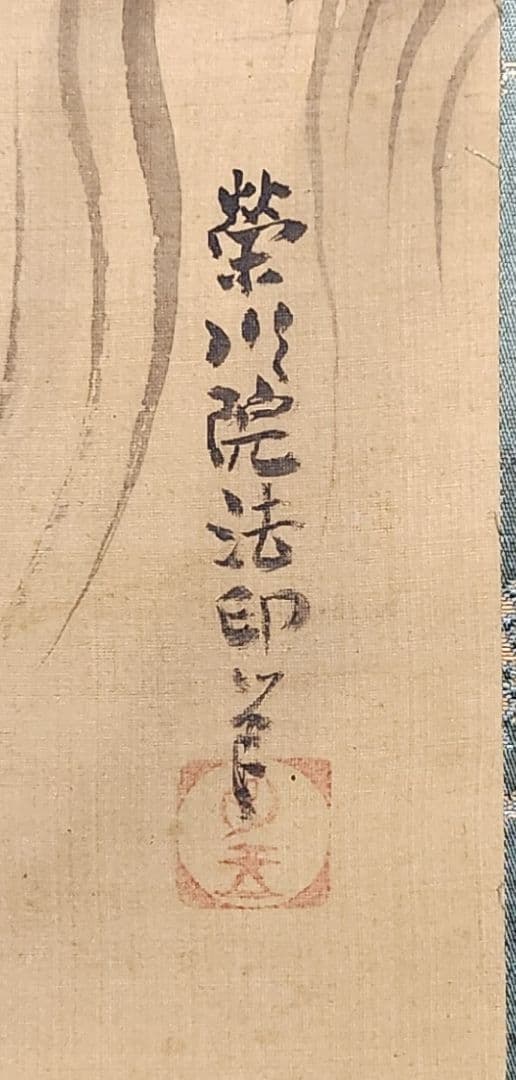 榮川院法印筆